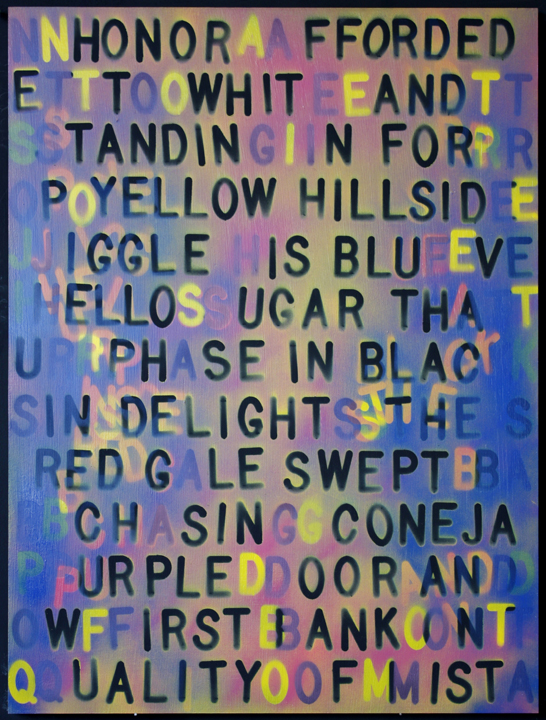 NNHONORAAFFORDED
ETTTOOWHITEEANDTT
SSTANDINGIIN FORRR
OPOYELLOW HILLSIDEE
JJIGGLE HIS BLUEEVE
HELLOSSUGAR THAT
UPPPHASE IN BLACK
SIN DELIGHTSSTHE S
RED GALE SWEPTBBA
BCHASINGGCONEJA
PPURPLEDDOOR ANDD
OWFFIRSTBBANKOONT
QQUALITYOOFMMISTA